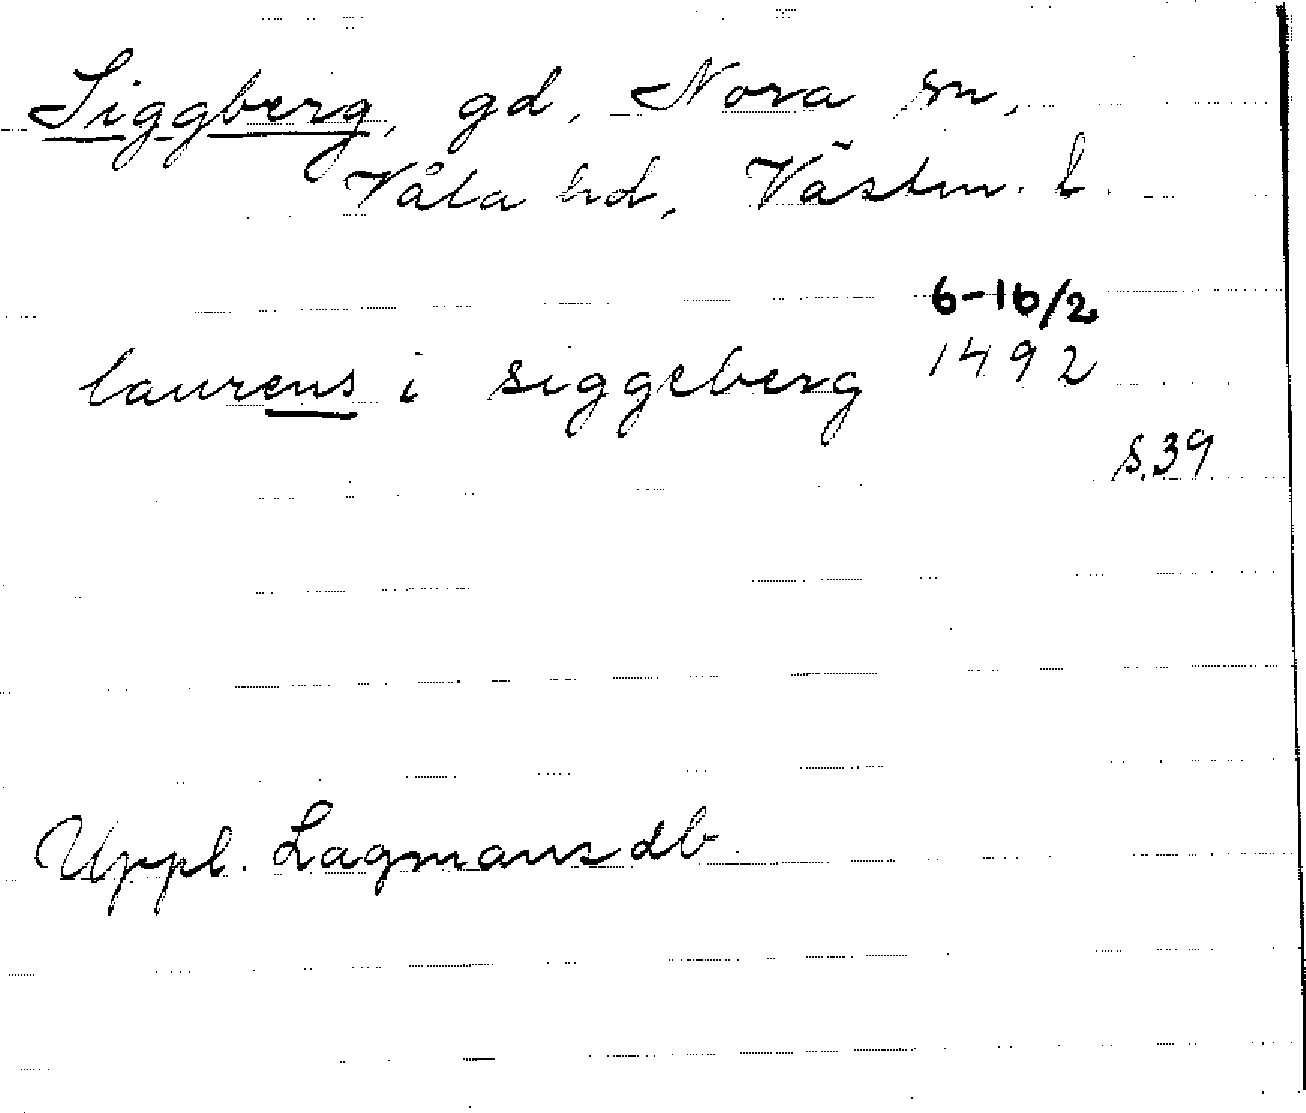 Siggberg, gd, Nora sn,
Våla hd, Västm. l.
6-16/2
laurens i siggeberg 1492
S.39
Uppl. Lagmansdb